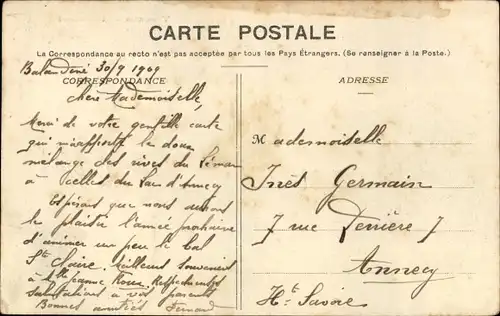 CARTE POSTALE
La Correspondance au recto n'est pas acceptée par tous les Pays Étrangers. (Se renseigner à la Poste.)
30/9 1909
CORRESPONDANCE
ADRESSE
Chère Mademoiselle,
Merci de votre gentille carte
qui m'apporte le doux
mélange des rives du Léman
à celles du Lac d'Annecy
Espérons que nous aurons
le plaisir l'année prochaine
d'animer un peu le bal
Ste Claire. Meilleurs souvenirs
à Mlle Jeanne Respectueuses
salutations à vos parents
Bonnes amitiés Fernand
Mademoiselle
Inès Germain
7 rue Derrière 7
Annecy
Hte Savoie